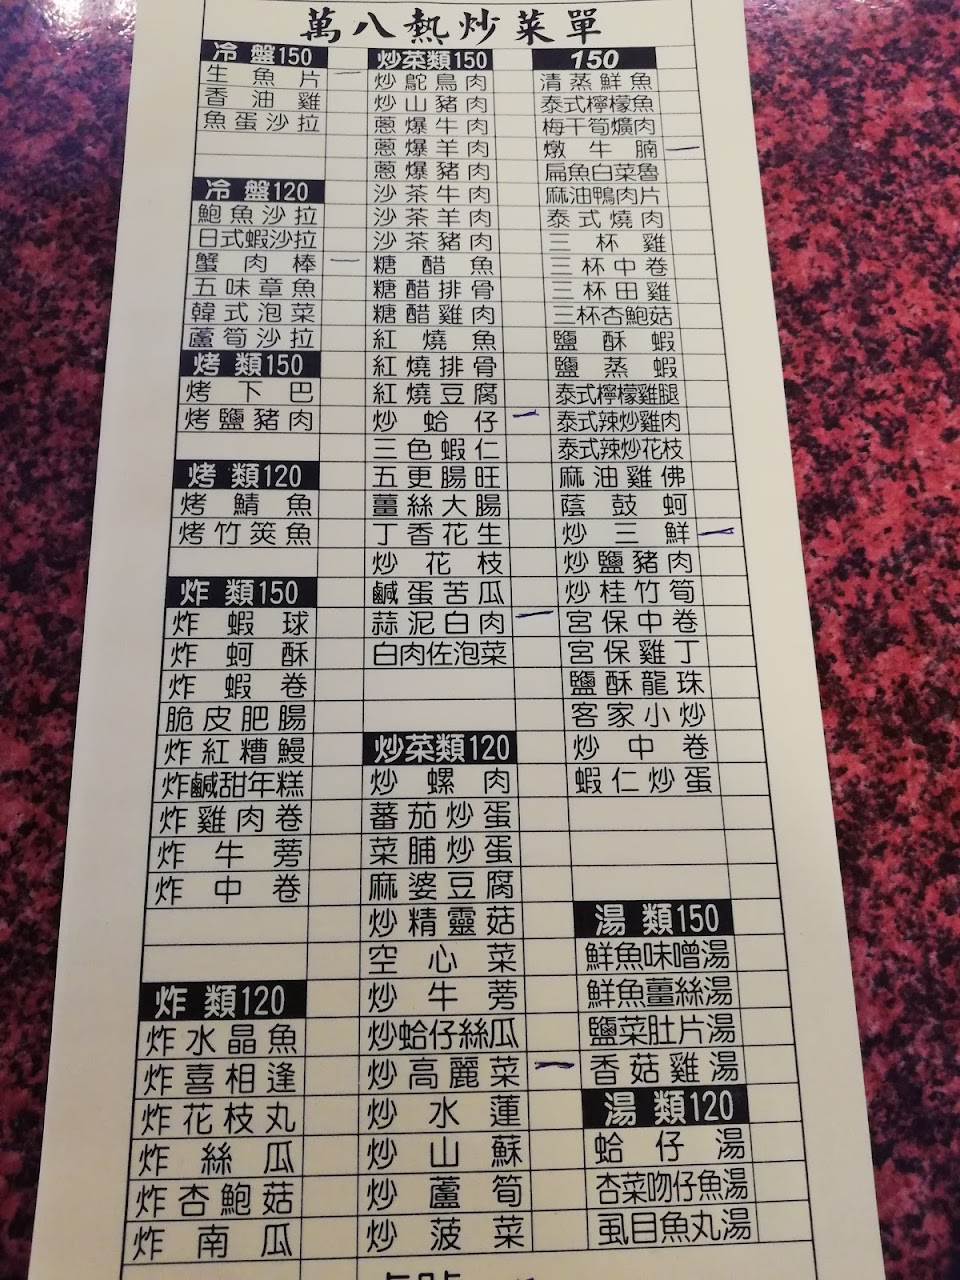 萬八熱炒菜單
冷盤150
生魚片
香油雞
魚蛋沙拉
冷盤120
鮑魚沙拉
日式蝦沙拉
蟹肉棒
五味章魚
韓式泡菜
蘆筍沙拉
烤類150
烤下巴
烤鹽豬肉
烤類120
烤鯖魚
烤竹筴魚
炸類150
炸蝦球
炸蚵酥
炸蝦卷
脆皮肥腸
炸紅糟鰻
炸鹹甜年糕
炸雞肉卷
炸牛蒡
炸中卷
炸類120
炸水晶魚
炸喜相逢
炸花枝丸
炸絲瓜
炸杏鮑菇
炸南瓜
炒菜類150
炒鴕鳥肉
炒山豬肉
蔥爆牛肉
蔥爆羊肉
蔥爆豬肉
沙茶牛肉
沙茶羊肉
沙茶豬肉
糖醋魚
糖醋排骨
糖醋雞肉
紅燒魚
紅燒排骨
紅燒豆腐
炒蛤仔
三色蝦仁
五更腸旺
薑絲大腸
丁香花生
炒花枝
鹹蛋苦瓜
蒜泥白肉
白肉佐泡菜
炒菜類120
炒螺肉
蕃茄炒蛋
菜脯炒蛋
麻婆豆腐
炒精靈菇
空心菜
炒牛蒡
炒蛤仔絲瓜
炒高麗菜
炒水蓮
炒山蘇
炒蘆筍
炒菠菜
150
清蒸鮮魚
泰式檸檬魚
梅干筍爌肉
燉牛腩
扁魚白菜魯
麻油鴨肉片
泰式燒肉
三杯雞
三杯中卷
三杯田雞
三杯杏鮑菇
鹽酥蝦
鹽蒸蝦
泰式檸檬雞腿
泰式辣炒雞肉
泰式辣炒花枝
麻油雞佛
蔭鼓蚵
炒三鮮
炒鹽豬肉
炒桂竹筍
宮保中卷
宮保雞丁
鹽酥龍珠
客家小炒
炒中卷
蝦仁炒蛋
湯類150
鮮魚味噌湯
鮮魚薑絲湯
鹽菜肚片湯
香菇雞湯
湯類120
蛤仔湯
杏菜吻仔魚湯
虱目魚丸湯